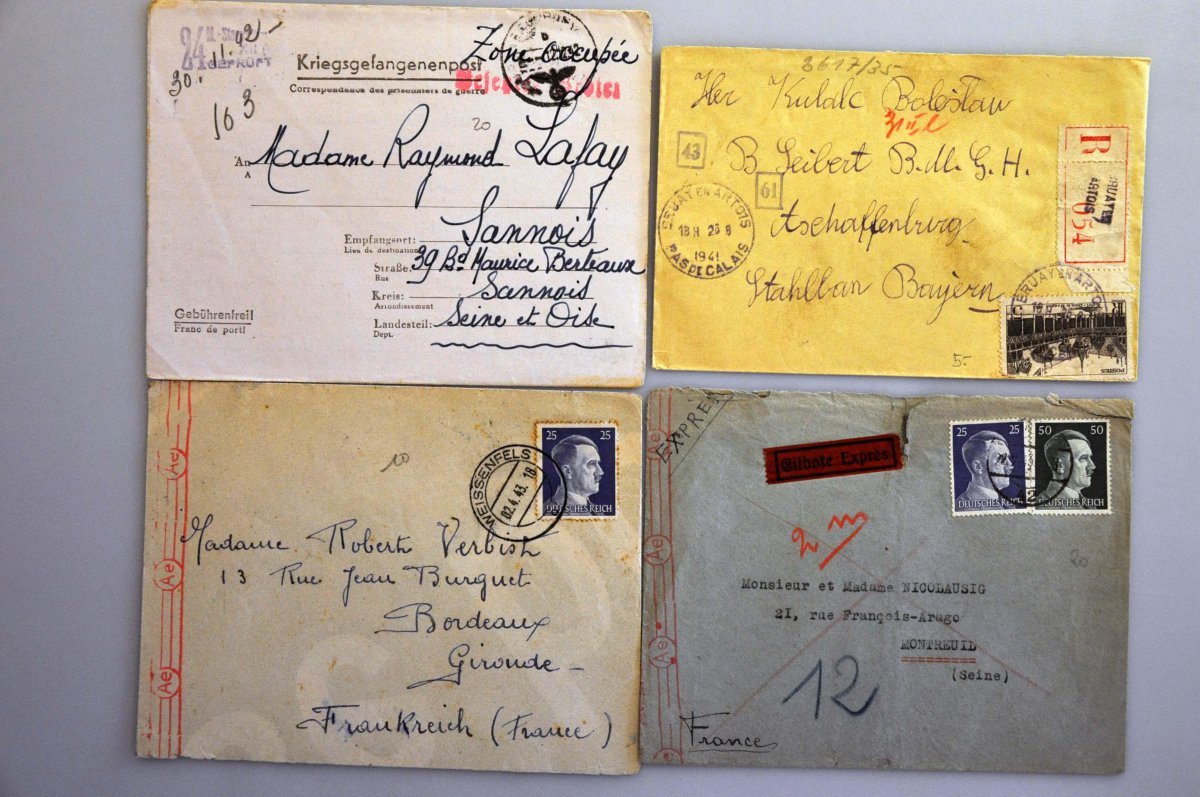 24
GEPRÜFT
30. 11. 02-
163
Kriegsgefangenenpost
Correspondance des prisonniers de guerre
Zone occupée
20
An
A
Madame Raymond Lafay
Empfangsort: Sannois
Lieu de destination
Straße: 39 Bd Maurice Berteaux
Rue
Kreis: Sannois
Arrondissement
Landesteil: Seine et Oise
Dept.
Gebührenfrei!
Franc de port!
3617/35-
Her Kulak Boleslaw
43
B Seibert B.M.G.H.
61
Aschaffenburg
Stahlban Bayern
BRUAY EN ARTOIS
18H 26 8
1941
PAS DE CALAIS
R
BRUAY EN
ARTOIS
054
BRUAY EN ARTOIS
POSTES
5-
Ae
Ae
Ae
20
WEISSENFELS
02.4.43. 18
25 25
DEUTSCHES REICH
Madame Robert Verbish
13 Rue Jean Burguet
Bordeaux
Gironde-
Frankreich (France)
Ae
Ae
Ae
EXPRES
Eilbote Exprès
25 25
DEUTSCHES REICH
50 50
DEUTSCHES REICH
20
Monsieur et Madame NICOLAUSIG
21, rue François-Arago
MONTREUIL
(Seine)
12
France